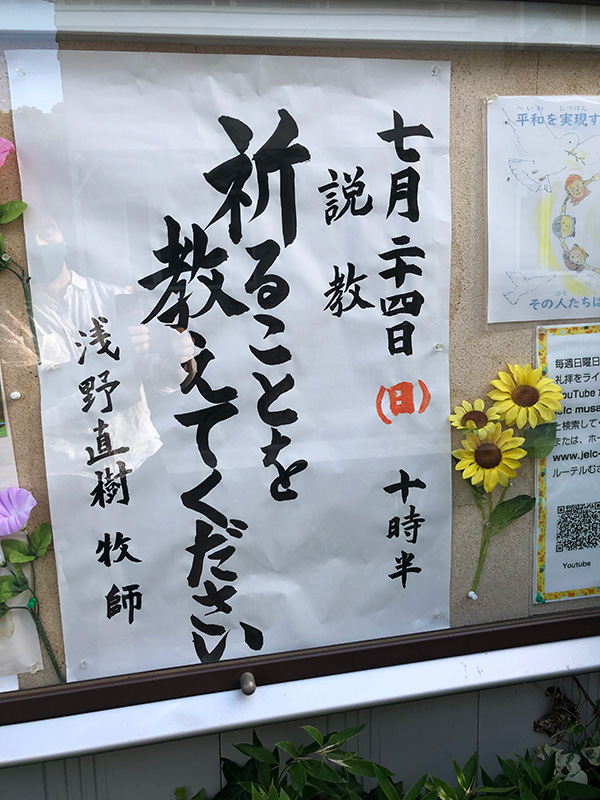 七月二十四日(日) 十時半
説教
祈ることを
教えてください
浅野直樹 牧師
へいわ じつげん
平和を実現す
ひと
その人たちは
毎週日曜日
礼拝をライ
YouTube
musa
と検索して
または、ホー
www.jelc-
ルーテルむさ
Youtube